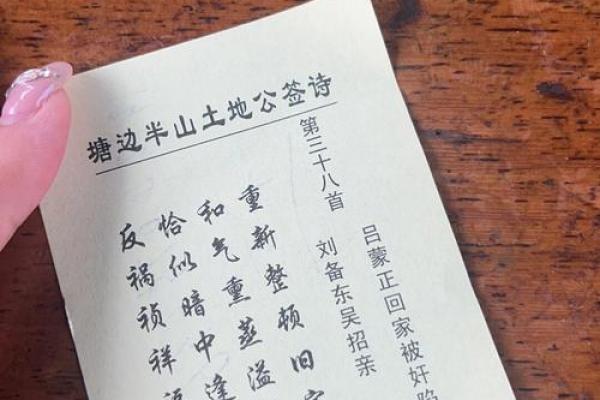 塘边半山土地公签诗
第三十八首
吕蒙正回家被奸
刘备东吴招亲
重新整顿旧
和气熏蒸溢
恰似暗中逢
反祸祯祥